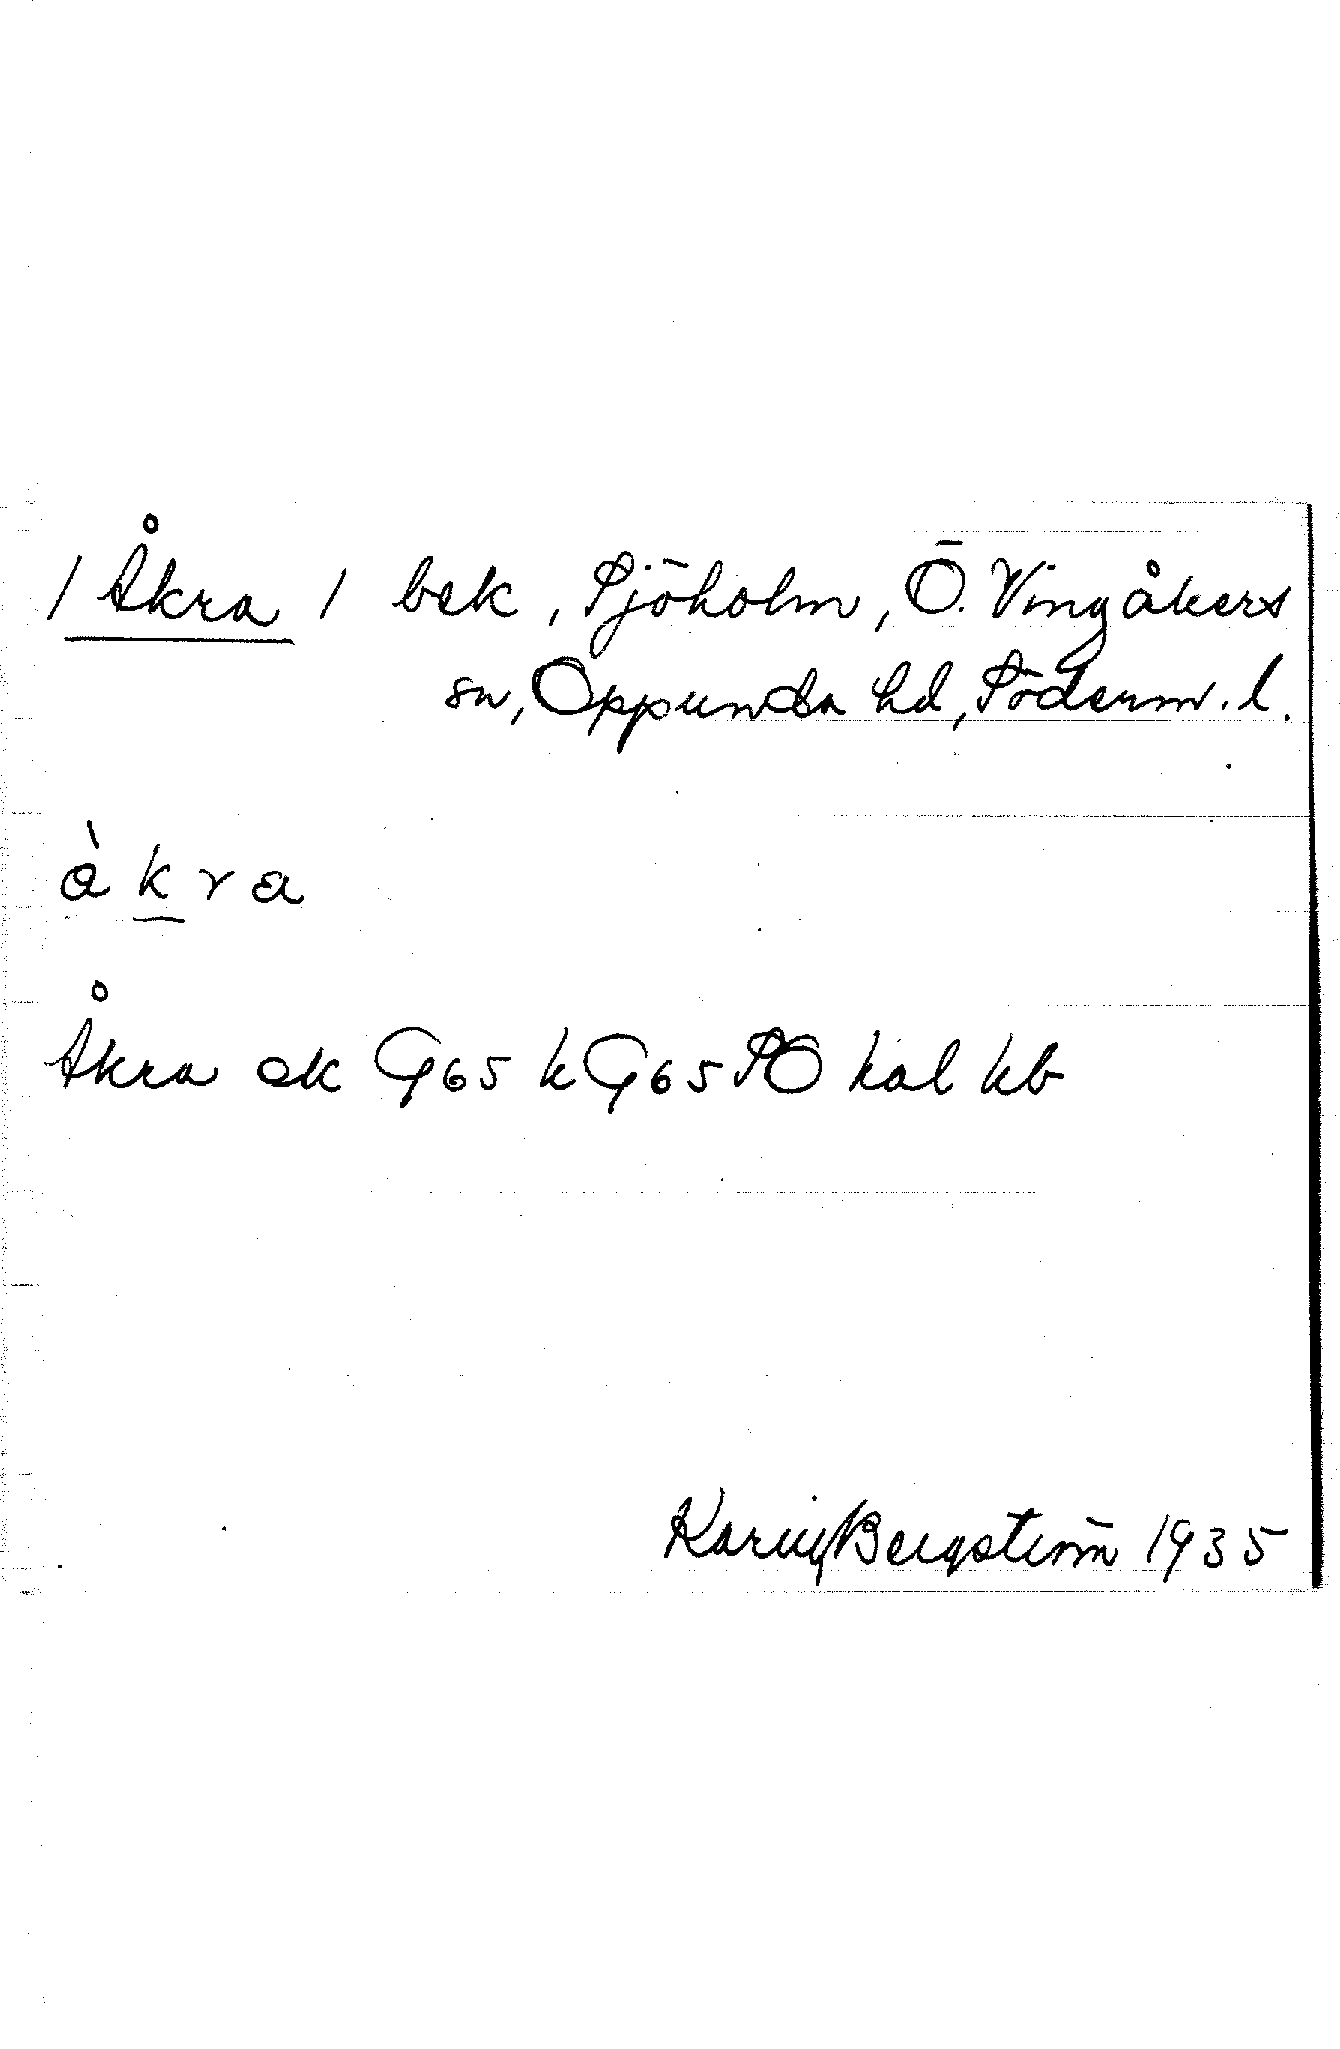 / Åkra / bek, Sjöholm, Ö. Vingåkers
sn, Oppunda hd, Söderm. l.
àkra
Åkra ek G65 k G65 SO hal kb
Karin Bergström 1935